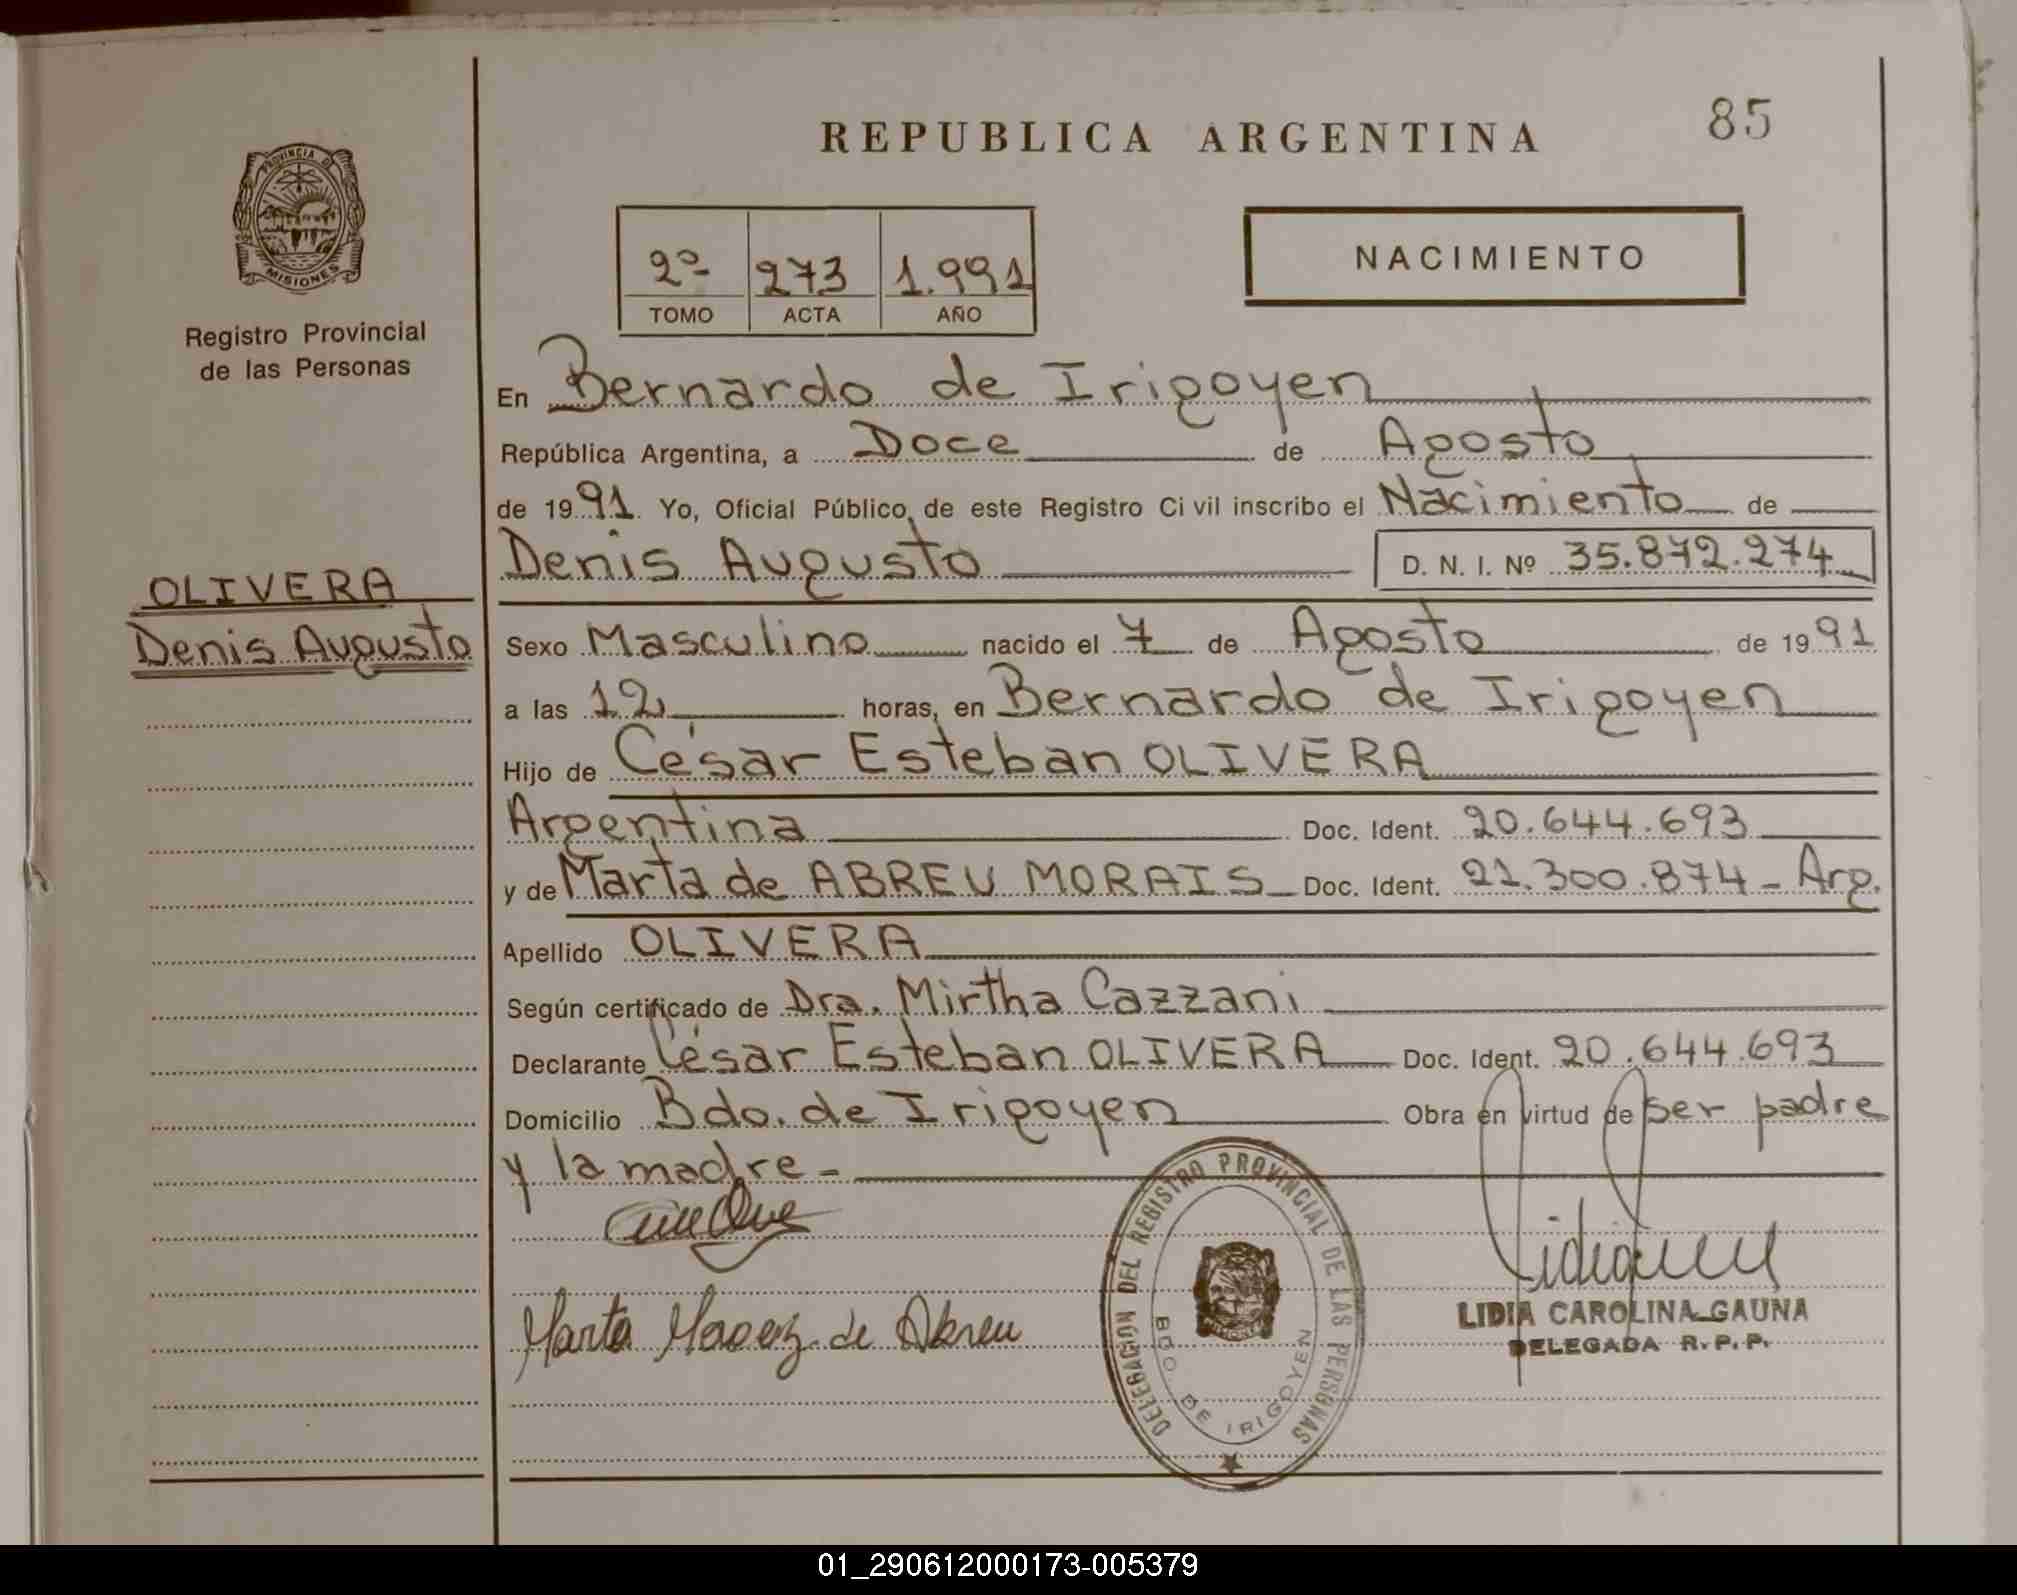 85
REPUBLICA ARGENTINA
PROVINCIA D MISIONES
Registro Provincial
de las Personas
2º 273 1.991
TOMO ACTA AÑO
NACIMIENTO
En Bernardo de Irigoyen
República Argentina, a Doce de Agosto
de 1991 Yo, Oficial Público de este Registro Civil inscribo el Nacimiento de
Denis Augusto D. N. I. Nº 35.872.274
OLIVERA
Denis Augusto
Sexo Masculino nacido el 7 de Agosto de 1991
a las 12 horas, en Bernardo de Irigoyen
Hijo de César Esteban OLIVERA
Argentina Doc. Ident. 20.644.693
y de Marta de ABREU MORAIS Doc. Ident. 21.300.874 - Arg.
Apellido OLIVERA
Según certificado de Dra. Mirtha Cazzani
Declarante César Esteban OLIVERA Doc. Ident. 20.644.693
Domicilio Bdo. de Irigoyen Obra en virtud de ser padre
y la madre -
Marta de Abreu
DELEGACION DEL REGISTRO PROVINCIAL DE LAS PERSONAS
BDO. DE IRIGOYEN
LIDIA CAROLINA GAUNA
DELEGADA R.P.P.
01_290612000173-005379